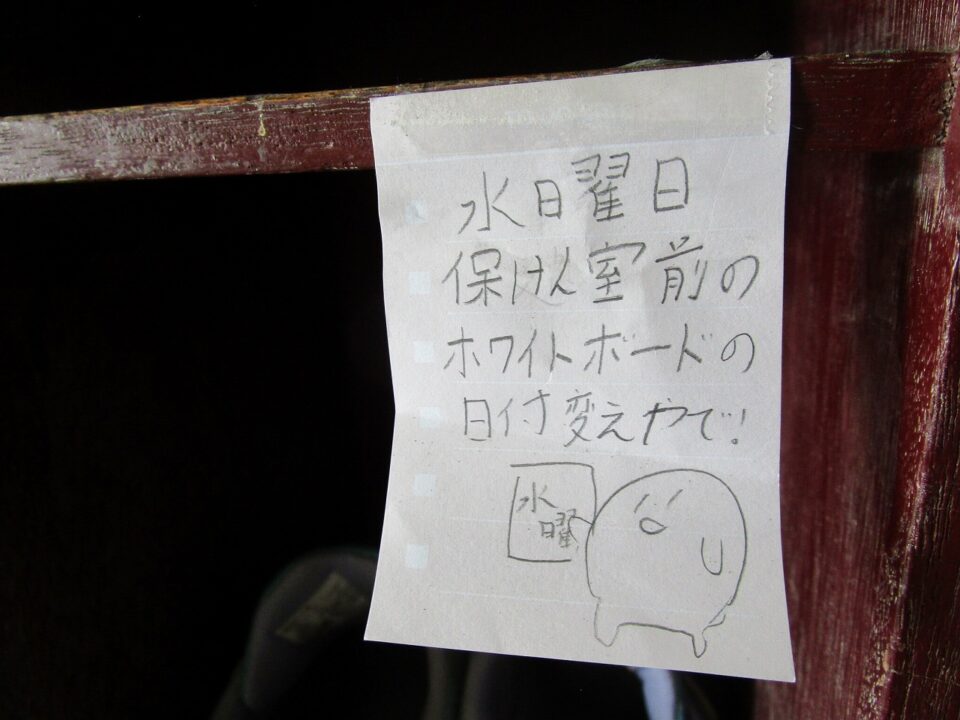 水日曜日
保けん室前の
ホワイトボードの
日付変えやで!
水
曜